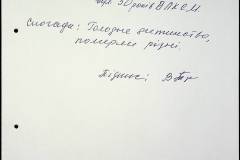 50 років ВЛКСМ.
Спогади: Голодне дитинство,
померли рідні.
Підпис: